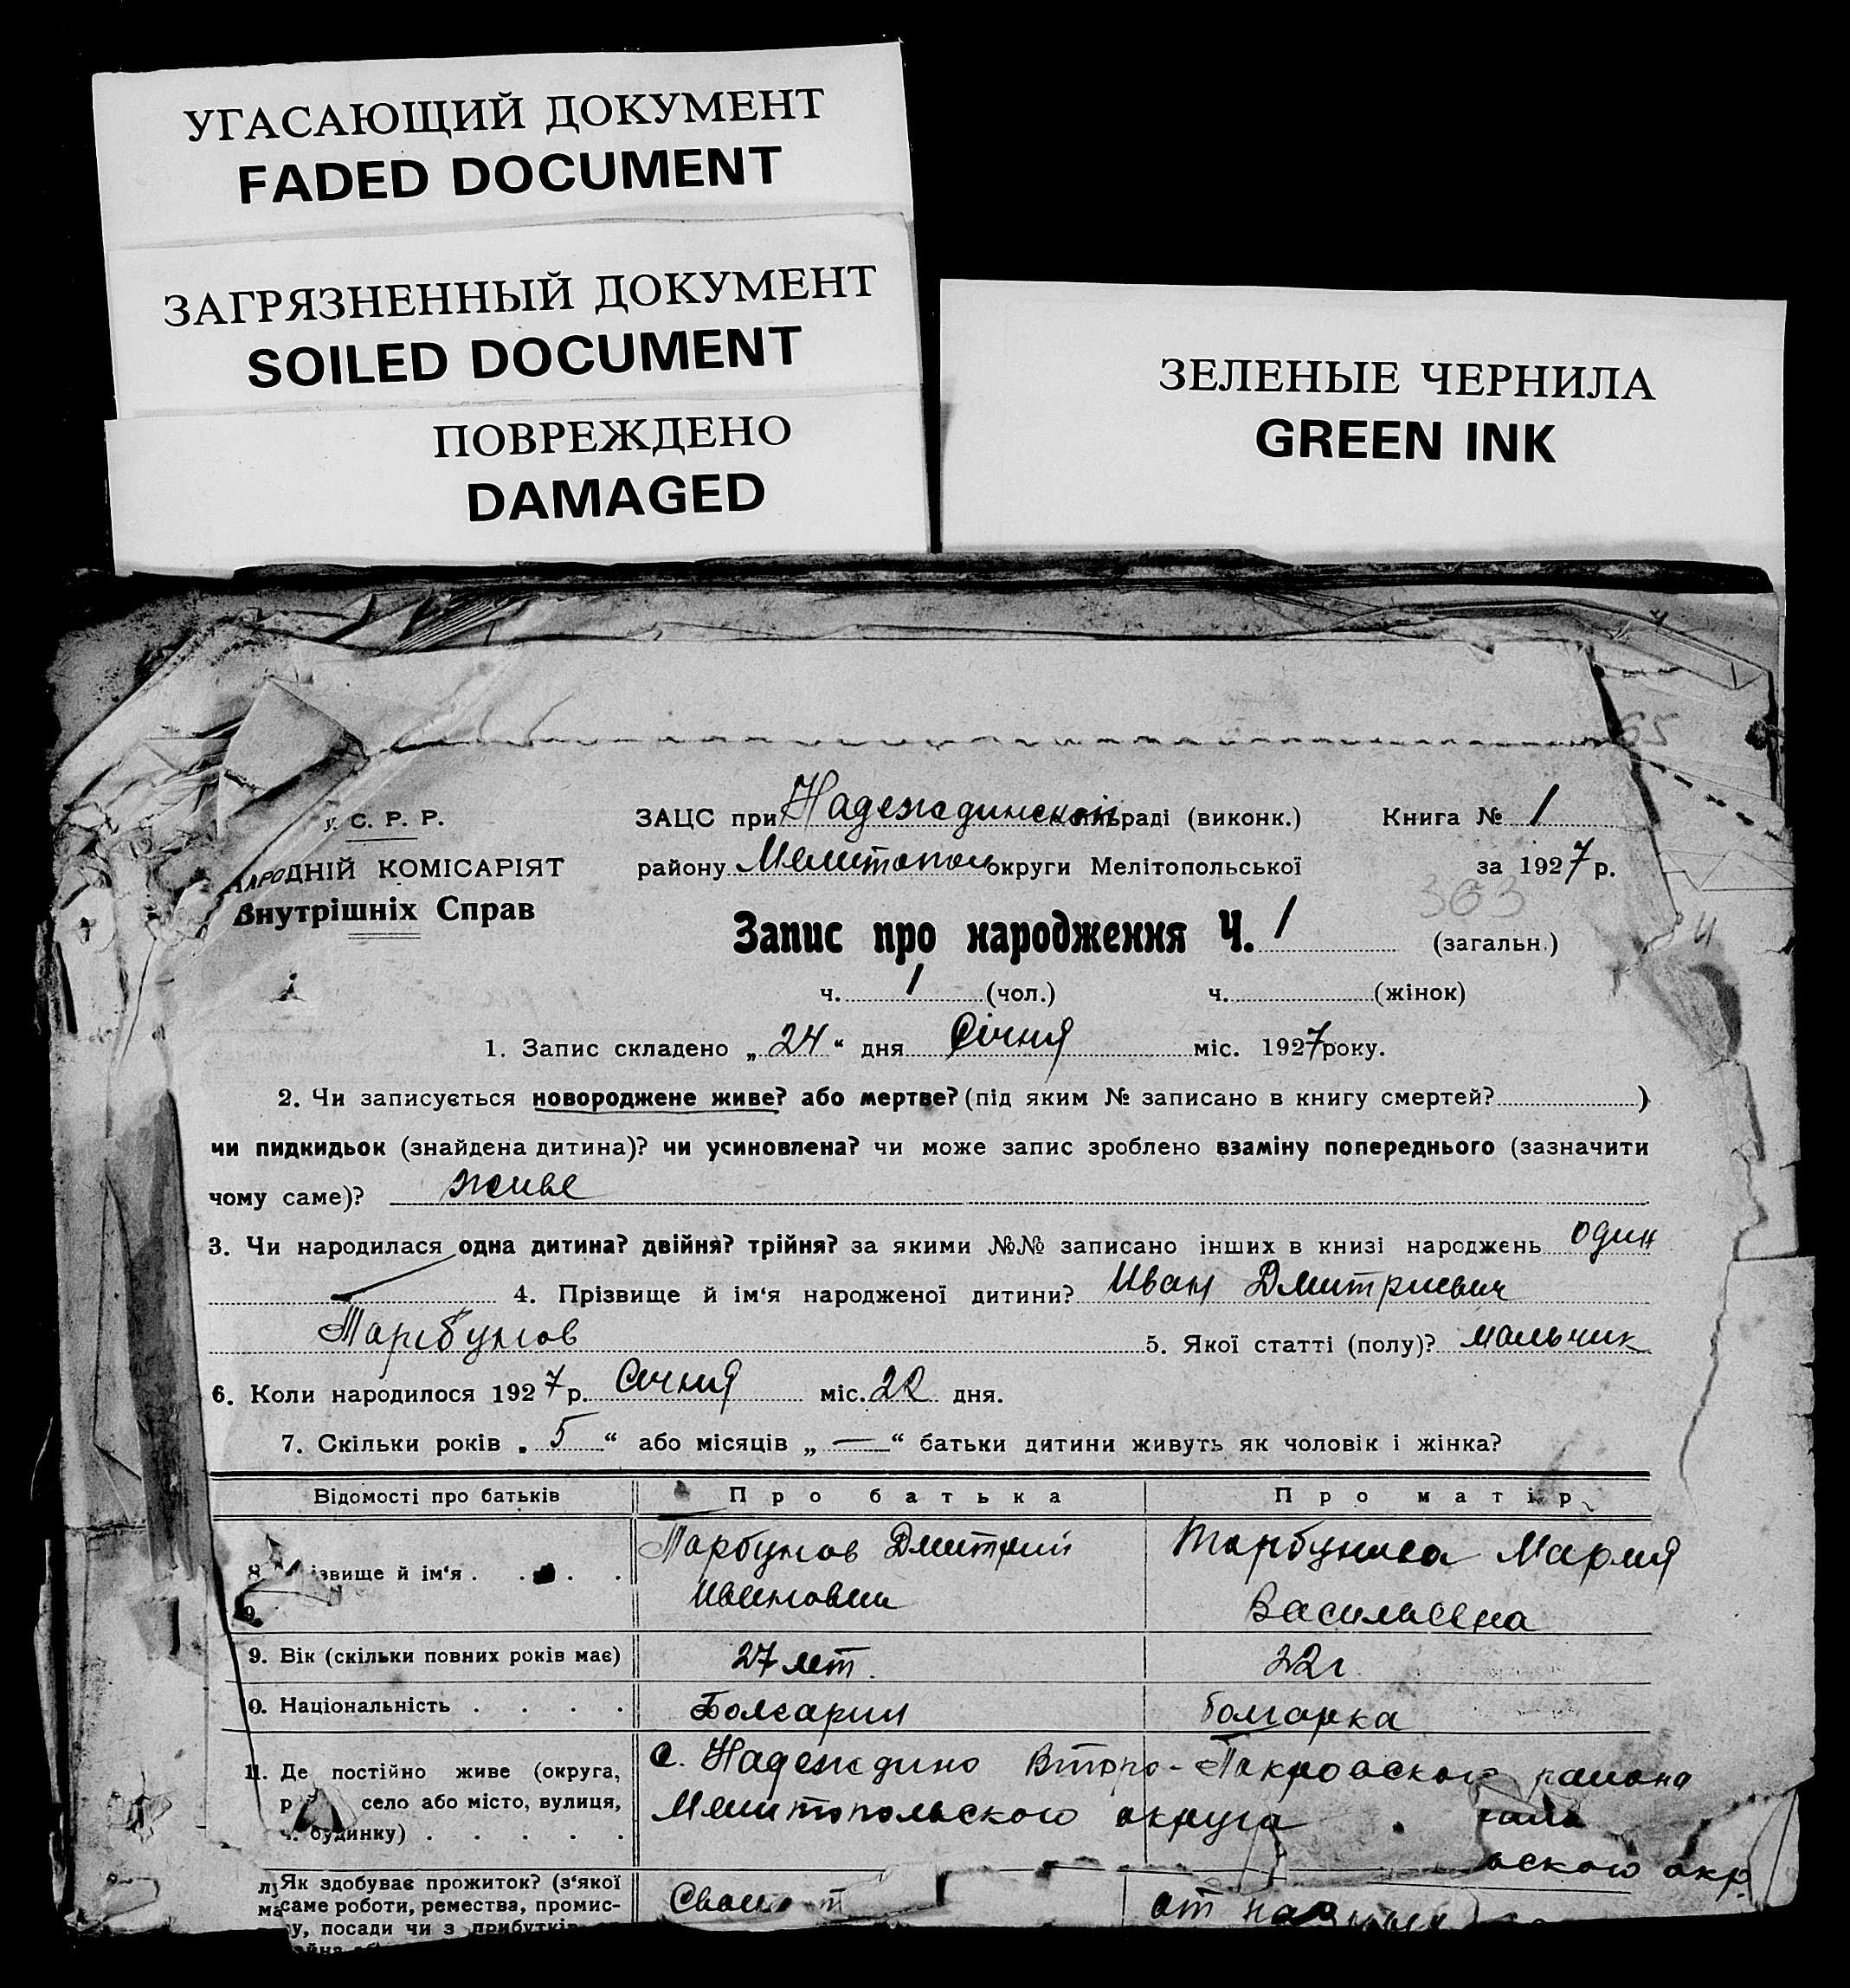 УГАСАЮЩИЙ ДОКУМЕНТ
FADED DOCUMENT
ЗАГРЯЗНЕННЫЙ ДОКУМЕНТ
SOILED DOCUMENT
ПОВРЕЖДЕНО
DAMAGED
ЗЕЛЕНЫЕ ЧЕРНИЛА
GREEN INK
65
У. С. Р. Р.
НАРОДНІЙ КОМІСАРІЯТ
Внутрішніх Справ
ЗАЦС при Надеждинской раді (виконк.) Книга № 1
району Мелитополь округи Мелітопольської за 1927 р.
363
Запис про народження Ч. 1 (загальн.)
ч. 1 (чол.) ч. (жінок)
1. Запис складено „ 24 “ дня Січня міс. 1927 року.
2. Чи записується новороджене живе? або мертве? (під яким № записано в книгу смертей? )
чи пидкидьок (знайдена дитина)? чи усиновлена? чи може запис зроблено взаміну попереднього (зазначити
чому саме)? живе
3. Чи народилася одна дитина? двійня? трійня? за якими №№ записано інших в книзі народжень один
4. Прізвище й ім‘я народженої дитини? Иван Дмитриевич
Тарбунов 5. Якої статті (полу)? мальчик
6. Коли народилося 1927 р. Січня міс. 22 дня.
7. Скільки років „ 5 “ або місяців „ — “ батьки дитини живуть як чоловік і жінка?
Відомості про батьків Про батька Про матір
8. ізвище й ім‘я . . . . Тарбунов Дмитрий Тарбунова Мария
Васильевна
9. Вік (скільки повних років має) 27 лет. 22 г
0. Національність . . . . Болгарин болгарка
11. Де постійно живе (округа, с. Надеждино Второ-Покровского района
село або місто, вулиця, Мелитопольского округа
ч. будинку) . . . . . окр.
Як здобуває прожиток? (з‘якої
саме роботи, ремества, промис-
у, посади чи з прибутків
от